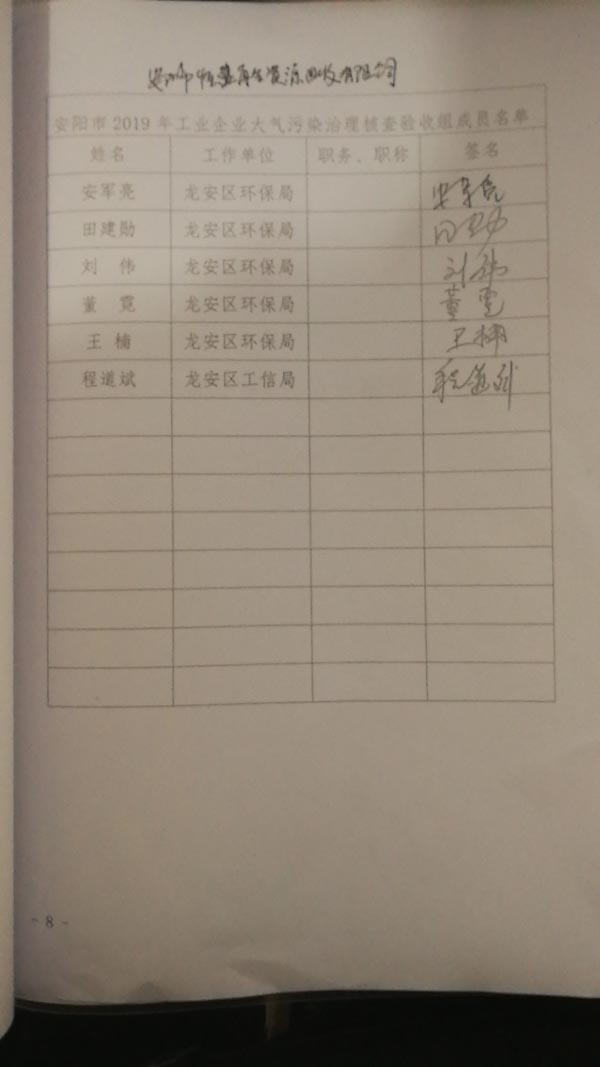 安阳市恒基再生资源回收有限公司
安阳市2019年工业企业大气污染治理核查验收组成员名单
姓名 工作单位 职务、职称 签名
安军亮 龙安区环保局 安军亮
田建勋 龙安区环保局
刘 伟 龙安区环保局 刘伟
董 霓 龙安区环保局 董霓
王 楠 龙安区环保局 王楠
程道斌 龙安区工信局 程道斌
- 8 -